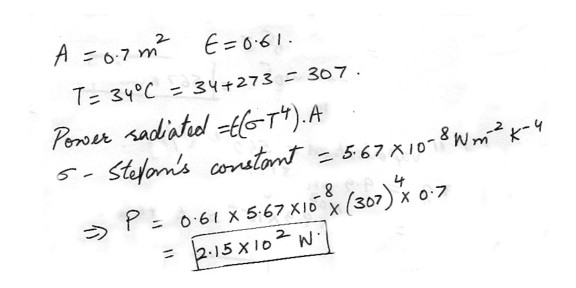 A = 0.7 m² E = 0.61.
T = 34°C = 34+273 = 307.
Power radiated = E(σT⁴).A
σ - Stefan's constant = 5.67 X 10⁻⁸ W m⁻² K⁻⁴
⇒ P = 0.61 X 5.67 X 10⁻⁸ X (307)⁴ X 0.7
= 2.15 X 10² W.